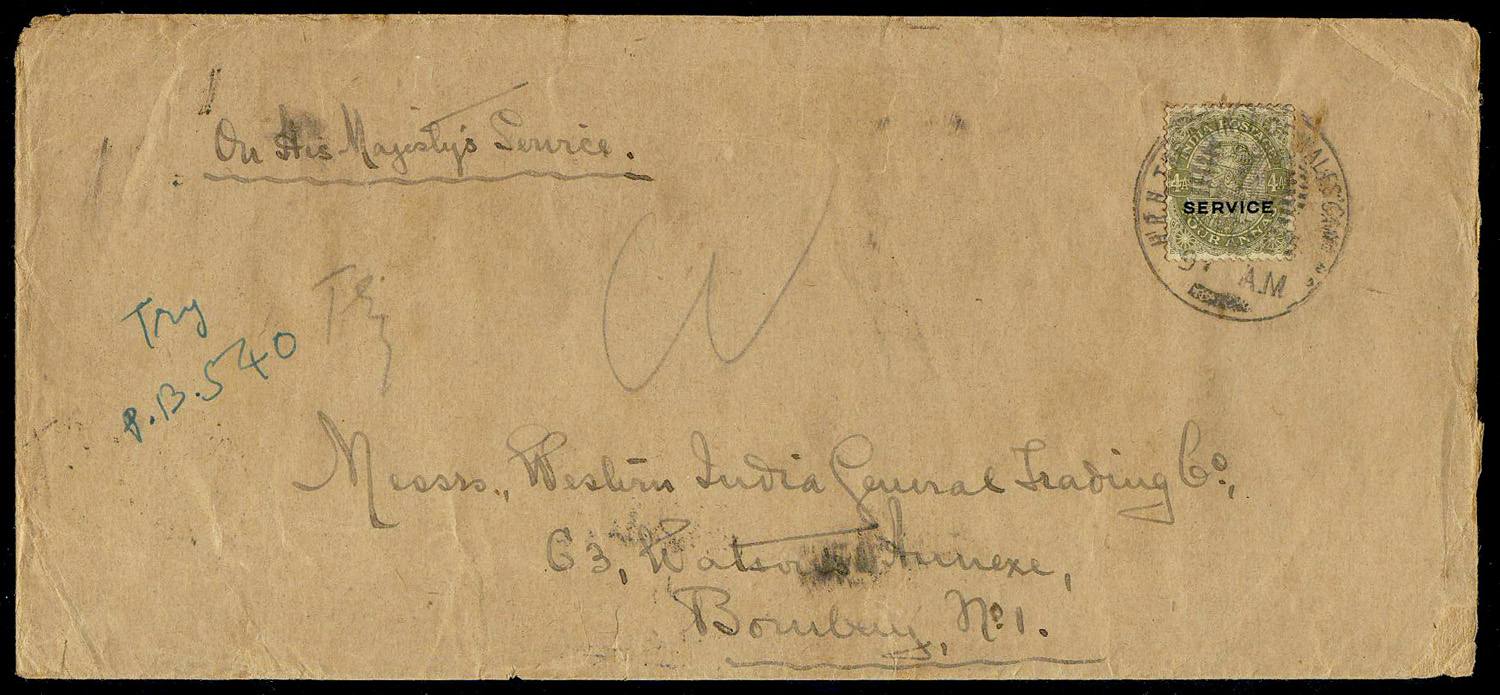 On His Majesty's Service.
INDIA POSTAGE
4A 4A
SERVICE
FOUR ANNAS
H.R.H. T WALES' CAMP
A.M
Try
Try
P.B. 540
Messrs., Western India General Trading Co.,
63, Watson's Annexe,
Bombay, No. 1.